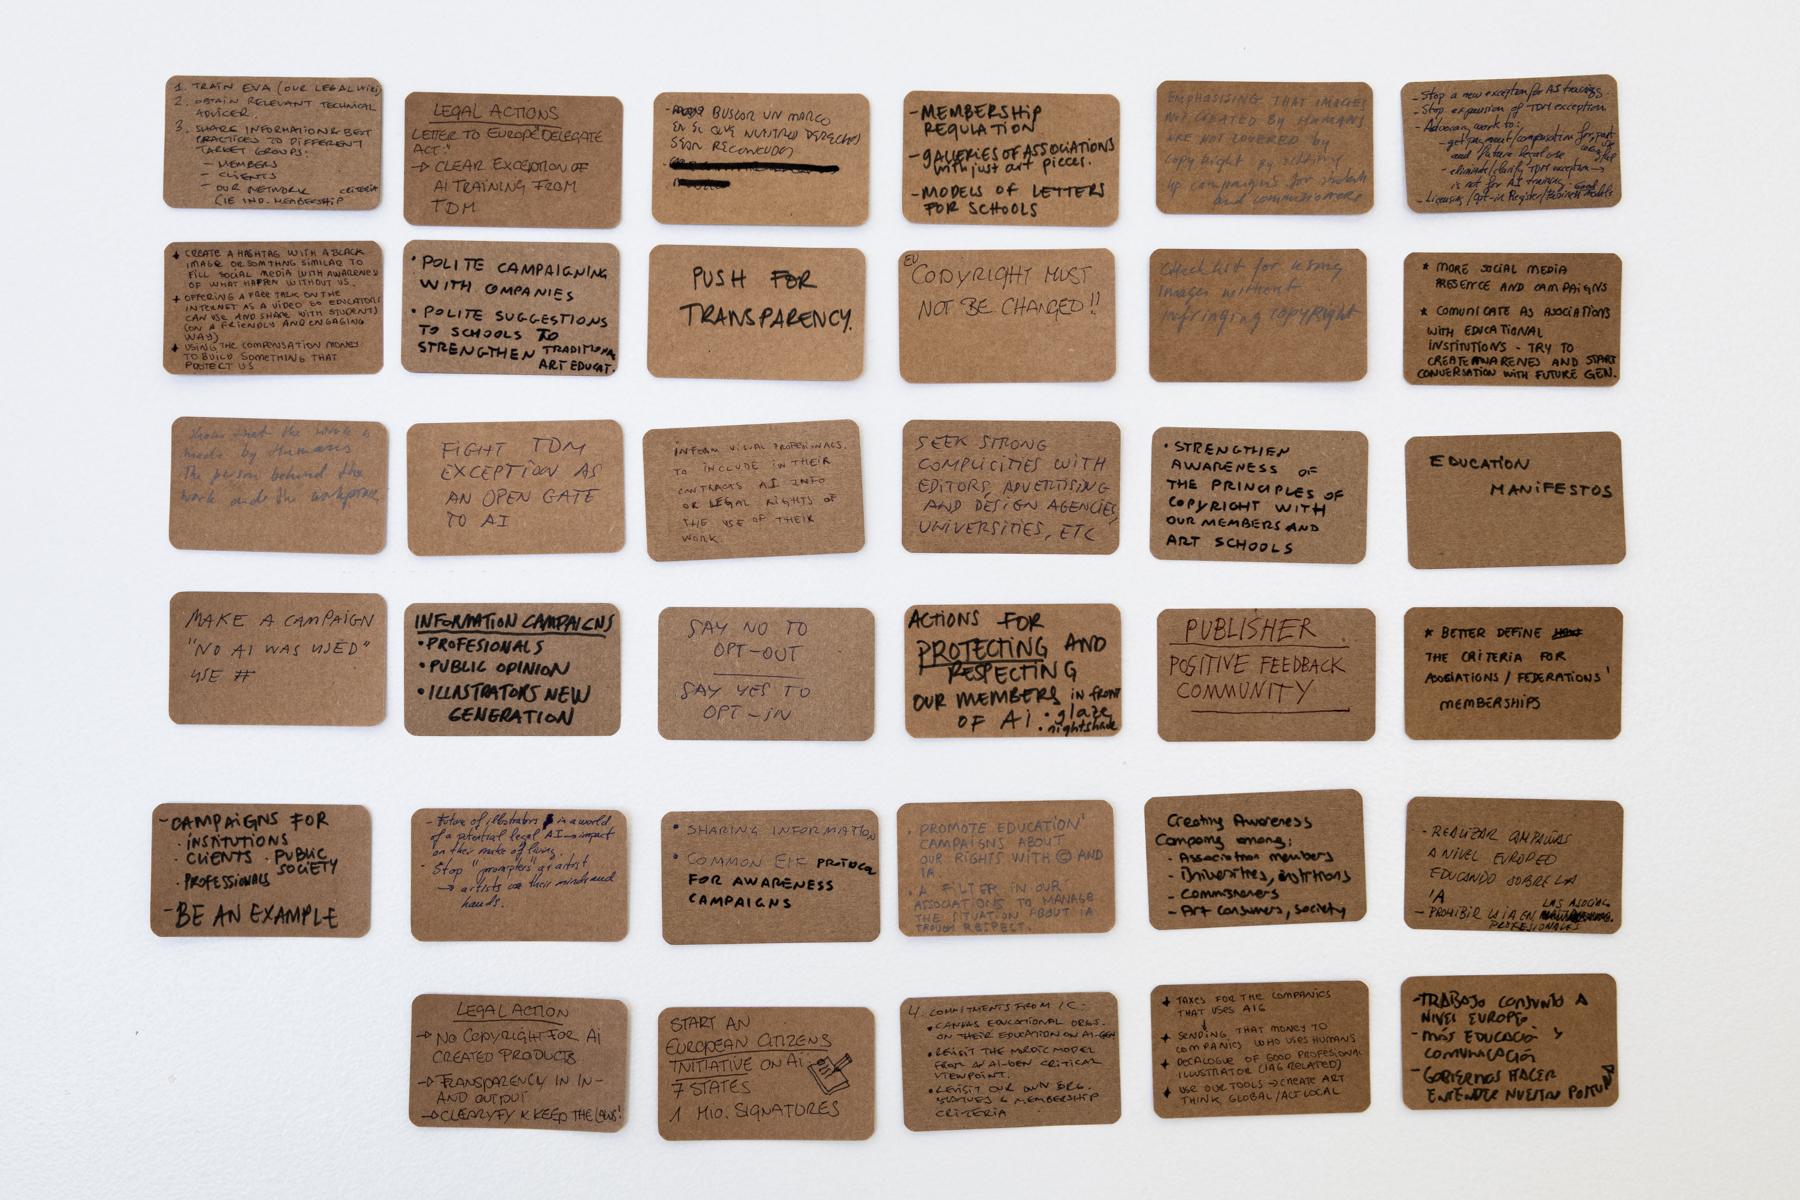 1. TRAIN EVA (OUR LEGAL WIKI)
2. OBTAIN RELEVANT TECHNICAL
ADVICER.
3. SHARE INFORMATION & BEST
PRACTICES TO DIFFERENT
TARGET GROUPS:
- MEMBERS
- CLIENTS
- OUR NETWORK CRITERIA
(IE IND. MEMBERSHIP
LEGAL ACTIONS
LETTER TO EUROPE DELEGATE
ACT:"
→ CLEAR EXCEPTION OF
AI TRAINING FROM
TDM
BUSCAR UN MARCO
EN EL QUE NUESTROS DERECHOS
SEAN RECONOCIDOS
- MEMBERSHIP
REGULATION
- GALLERIES OF ASSOCIATIONS
with just art pieces.
- MODELS OF LETTERS
FOR SCHOOLS
EMPHASISING THAT IMAGES
NOT CREATED BY HUMANS
ARE NOT COVERED BY
copyright by setting
up campaigns for students
and commissioners
- Stop a new exception for AI training.
- Stop expansion of TDM exception
- Advocacy work to:
- get payment/compensation for past
and future legal use
- eliminate/clarify TDM exception →
is not for AI training
- Licensing/Opt-in Register/Business models
+ CREATE A HASHTAG WITH A BLACK
IMAGE OR SOMTHNG SIMILAR TO
FILL SOCIAL MEDIA WITH AWARENES
OF WHAT HAPPEN WITHOUT US.
+ OFFERING A FREE TALK ON THE
INTERNET AS A VIDEO SO EDUCATORS
CAN USE AND SHARE WITH STUDENTS
(ON A FRIENDLY AND ENGAGING
WAY)
+ USING THE COMPENSATION MONEY
TO BUILD SOMETHING THAT
PROTECT US
• POLITE CAMPAIGNING
WITH COMPANIES
• POLITE SUGGESTIONS
TO SCHOOLS TO
STRENGTHEN TRADITIONAL
ART EDUCAT.
PUSH FOR
TRANSPARENCY.
EU
COPYRIGHT MUST
NOT BE CHANGED!!
Checklist for using
images without
infringing copyright
* MORE SOCIAL MEDIA
PRESENCE AND CAMPAIGNS
* COMUNICATE AS ASOCIATIONS
WITH EDUCATIONAL
INSTITUTIONS - TRY TO
CREATE AWARENES AND START
CONVERSATION WITH FUTURE GEN.
Show that the work is
made by Humans
The person behind the
work and the workprocess
FIGHT TDM
EXCEPTION AS
AN OPEN GATE
TO AI
INFORM VISUAL PROFESIONALS.
TO INCLUDE IN THEIR
CONTRACTS AI INFO
OR LEGAL RIGHTS OF
THE USE OF THEIR
WORK.
SEEK STRONG
COMPLICITIES WITH
EDITORS, ADVERTISING
AND DESIGN AGENCIES,
UNIVERSITIES, ETC
• STRENGTHEN
AWARENESS OF
THE PRINCIPLES OF
COPYRIGHT WITH
OUR MEMBERS AND
ART SCHOOLS
EDUCATION
MANIFESTOS
MAKE A CAMPAIGN
"NO AI WAS USED"
USE #
INFORMATION CAMPAIGNS
• PROFESIONALS
• PUBLIC OPINION
• ILLUSTRATORS NEW
GENERATION
SAY NO TO
OPT-OUT
SAY YES TO
OPT-IN
ACTIONS FOR
PROTECTING AND
RESPECTING
OUR MEMBERS in front
OF AI • glaze
• nightshade
PUBLISHER
POSITIVE FEEDBACK
COMMUNITY
* BETTER DEFINE
THE CRITERIA FOR
ASOCIATIONS / FEDERATIONS'
MEMBERSHIPS
- CAMPAIGNS FOR
• INSTITUTIONS
• CLIENTS • PUBLIC
SOCIETY
• PROFESSIONALS
- BE AN EXAMPLE
- Future of illustrators in a world
of a potential legal AI → impact
on their make of living.
- Stop "prompters" as artist
→ artists are their minds and
hands.
• SHARING INFORMATION
• COMMON EIF PROTOCOL
FOR AWARENESS
CAMPAIGNS
• PROMOTE EDUCATION'
CAMPAIGNS ABOUT
OUR RIGHTS WITH © AND
IA.
• A FILTER IN OUR
ASSOCIATIONS TO MANAGE
THE SITUATION ABOUT IA
TROUGH RESPECT.
Creating Awareness
Campaing among:
• Association members
• Universities, institutions
- Commisioners
- Art consumers, society
- REALIZAR CAMPAÑAS
A NIVEL EUROPEO
EDUCANDO SOBRE LA
IA
- PROHIBIR LA IA EN LAS ASOCIAC.
PROFESIONALES
LEGAL ACTION
→ NO COPYRIGHT FOR AI
CREATED PRODUCTS
→ TRANSPARENCY IN IN-
AND OUTPUT
→ CLEARYFY & KEEP THE LAWS!
START AN
EUROPEAN CITIZENS
INITIATIVE ON AI:
7 STATES
1 MIO. SIGNATURES
4. COMMITMENTS FROM IC:
• CANVAS EDUCATIONAL ORGS.
ON THEIR EDUCATION ON AI-GEN
• REVISIT THE NORDIC MODEL
FROM AN AI-GEN CRITICAL
VIEWPOINT.
• REVISIT OUR OWN ORG.
STATUES & MEMBERSHIP
CRITERIA
+ TAXES FOR THE COMPANICS
THAT USES AIG
+ SENDING THAT MONEY TO
COMPANICS WHO USES HUMANS
+ DECALOGUE OF GOOD PROFESIONAL
ILLUSTRATOR (IAG RELATED)
+ USE OUR TOOLS → CREATE ART
THINK GLOBAL/ACT LOCAL
- TRABAJO CONJUNTO A
NIVEL EUROPEO
- MÁS EDUCACIÓN Y
COMUNICACIÓN
- GOBIERNOS HACER
ENTENDER NUESTRA POSTURA